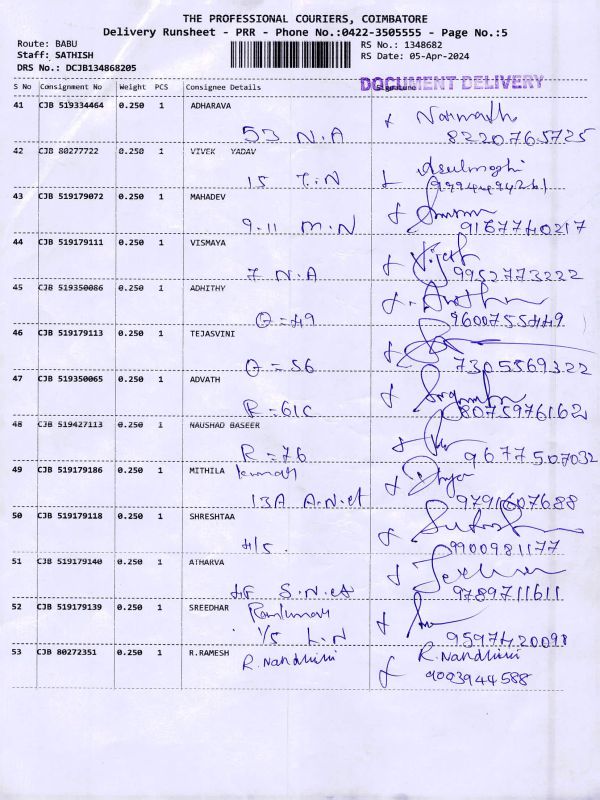 THE PROFESSIONAL COURIERS, COIMBATORE
Delivery Runsheet - PRR - Phone No.:0422-3505555 - Page No.:5
Route: BABU
Staff: SATHISH
DRS No.: DCJB134868205
RS No.: 1348682
RS Date: 05-Apr-2024
DOCUMENT DELIVERY
S No Consignment No Weight PCS Consignee Details Signature
41 CJB 519334464 0.250 1 ADHARAVA
53 N.A 8220765725
42 CJB 80277722 0.250 1 VIVEK YADAV
15 T.N
43 CJB 519179072 0.250 1 MAHADEV
9-11 M.N 9167740217
44 CJB 519179111 0.250 1 VISMAYA
7 N.A 9952773222
45 CJB 519350086 0.250 1 ADHITHY
O = 49 9600755449
46 CJB 519179113 0.250 1 TEJASVINI
O = 56 7305569322
47 CJB 519350065 0.250 1 ADVATH
R = 61C 8075976162
48 CJB 519427113 0.250 1 NAUSHAD BASEER
R = 76 9677507032
49 CJB 519179186 0.250 1 MITHILA kumar
13A A.N.et 9791607688
50 CJB 519179118 0.250 1 SHRESHTAA
4/5 9900981177
51 CJB 519179140 0.250 1 ATHARVA
45 S.N.et 9789711611
52 CJB 519179139 0.250 1 SREEDHAR Ramkumar
1/5 L.N 9597420098
53 CJB 80272351 0.250 1 R.RAMESH R. Nandhini
R. Nandhini 9003944588